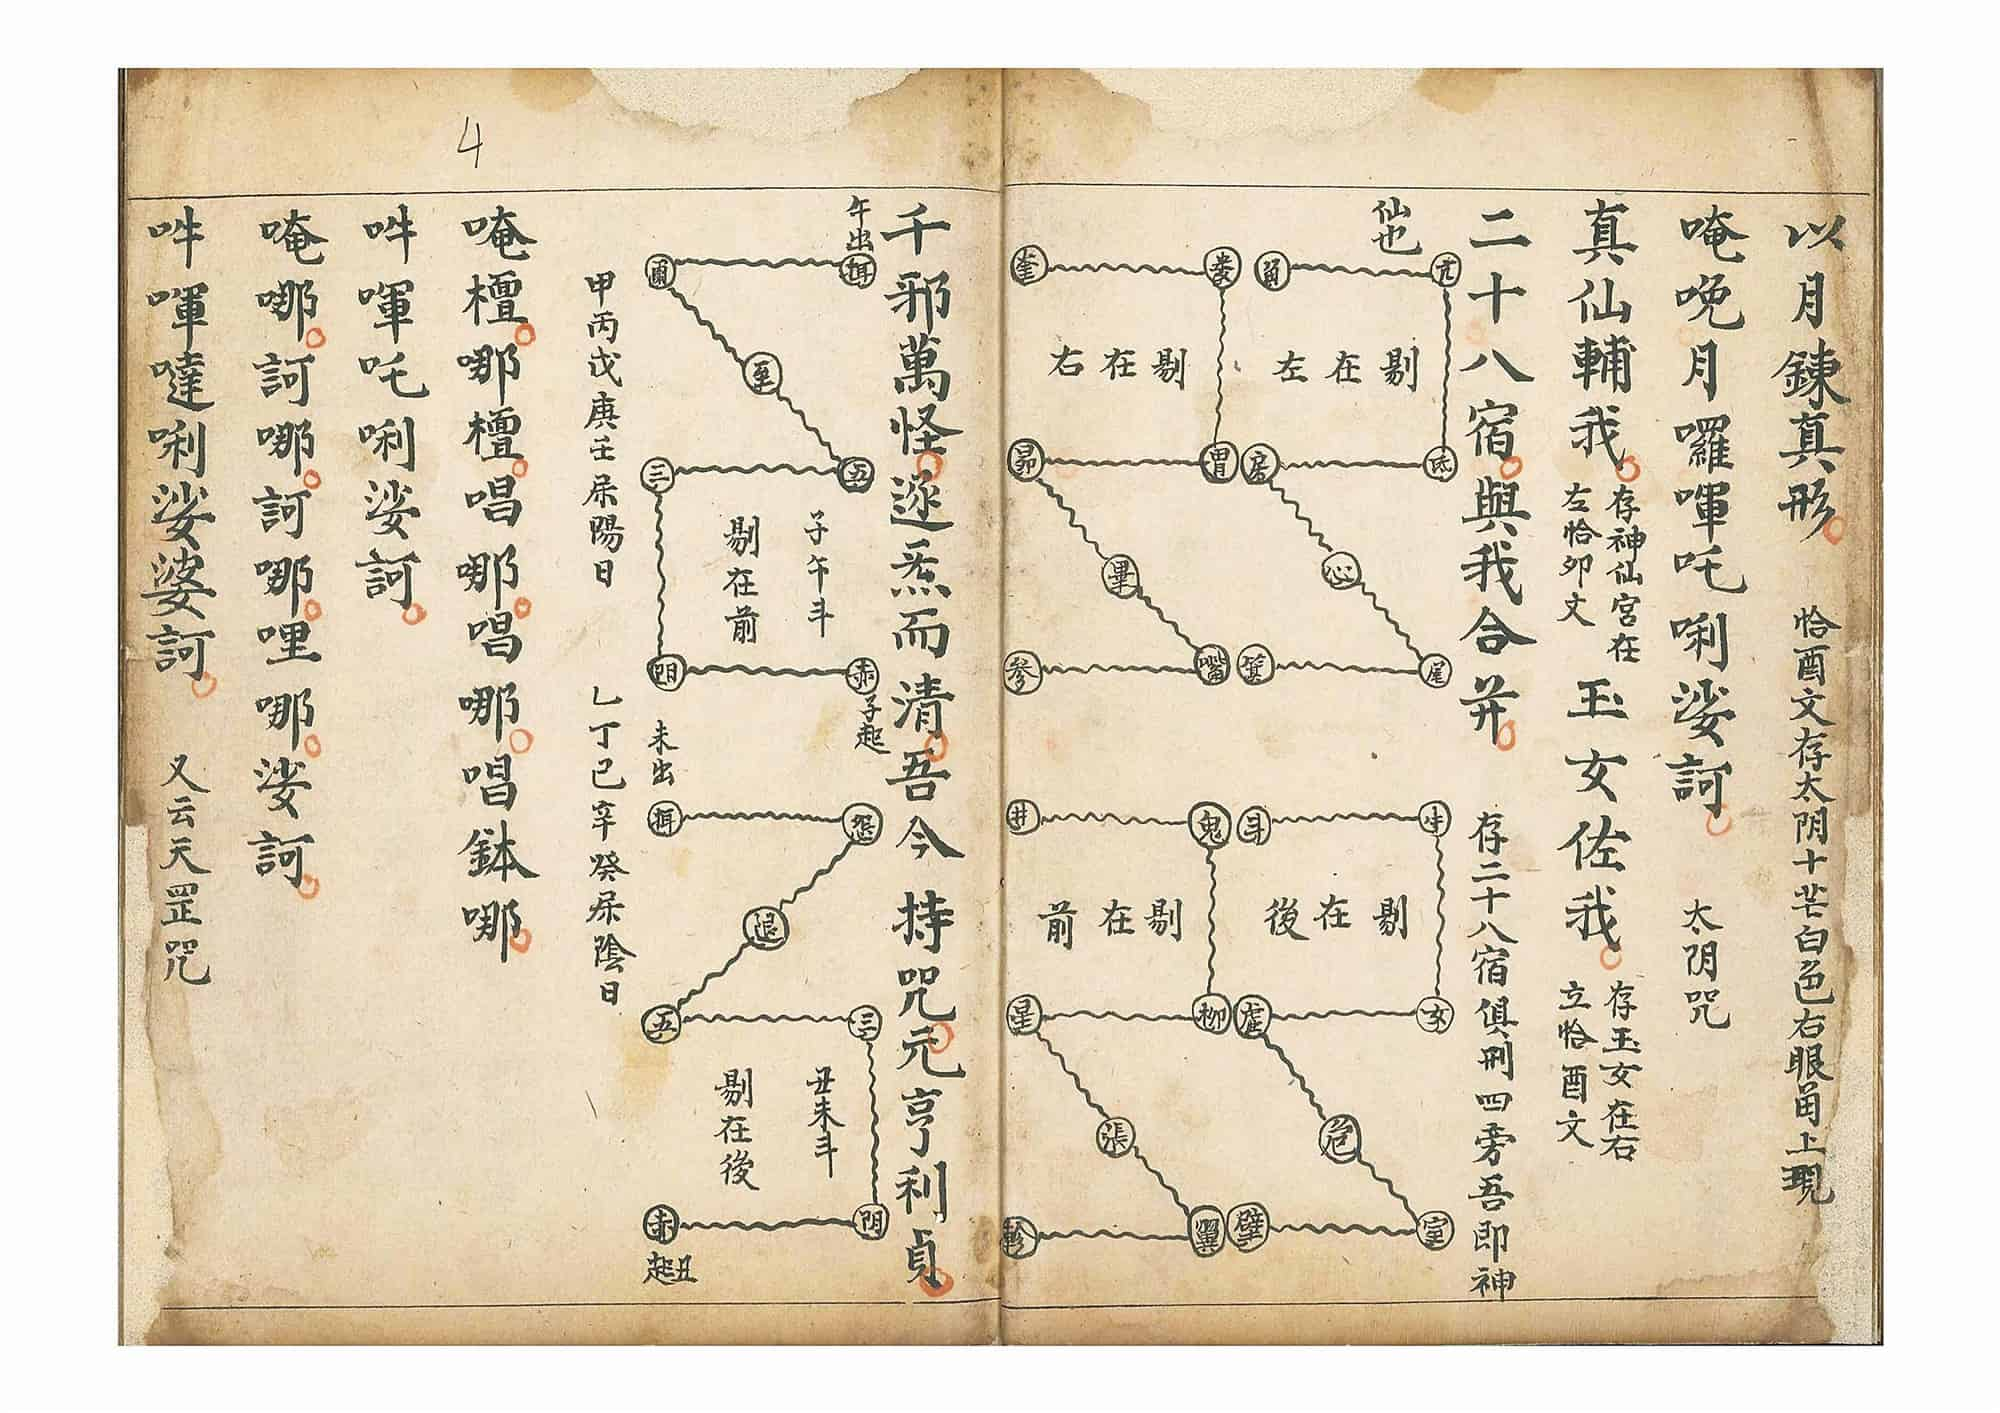 以月鍊真形 恰酉文存太阴十芒白色右眼角上現
唵晚月囉喗吒唎娑訶 太阴咒
真仙輔我 存神仙宮在
左恰卯文
玉女佐我 存玉女在右
立恰酉文
二十八宿與我合并 存二十八宿俱刑四旁吾即神
仙也
亢 角
氐 房
心
尾 箕
剔在左
牛 斗
女 虚
危
室 壁
剔在後
婁 奎
胃 昴
畢
嘴 参
剔在右
鬼 井
柳 星
張
翼 軫
剔在前
千邪萬怪逐炁而清吾今持咒元亨利貞
午出
五
三
子午斗
剔在前
子起
未出
退
三 五
丑未斗
剔在後
丑起
甲丙戊庚壬屎陽日 乙丁巳辛癸屎陰日
唵檀哪檀唱哪唱哪唱鉢哪
吽喗吒唎娑訶
唵哪訶哪訶哪哩哪娑訶
吽喗噠唎娑婆訶 又云天罡咒
4